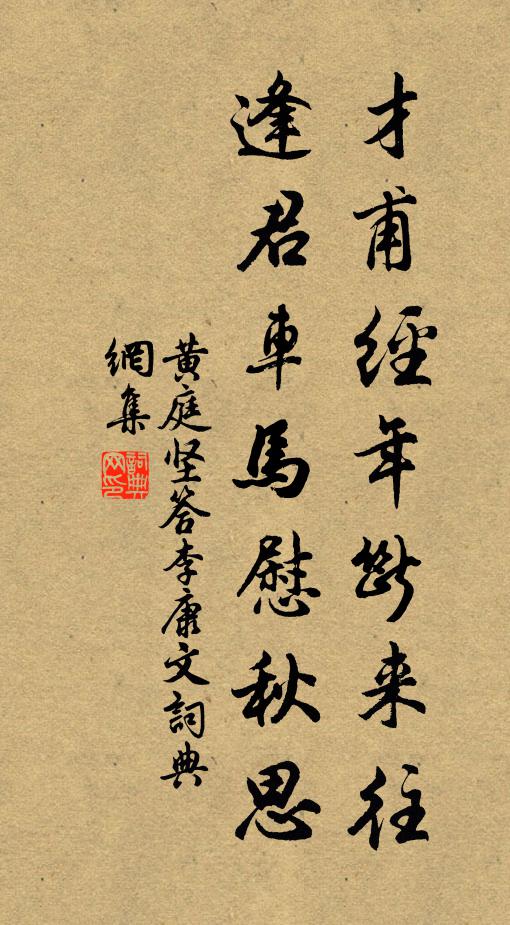 才甫經年斷来往
逢君車馬慰秋思
黄庭坚答李康文詞典
網集
詞典网印